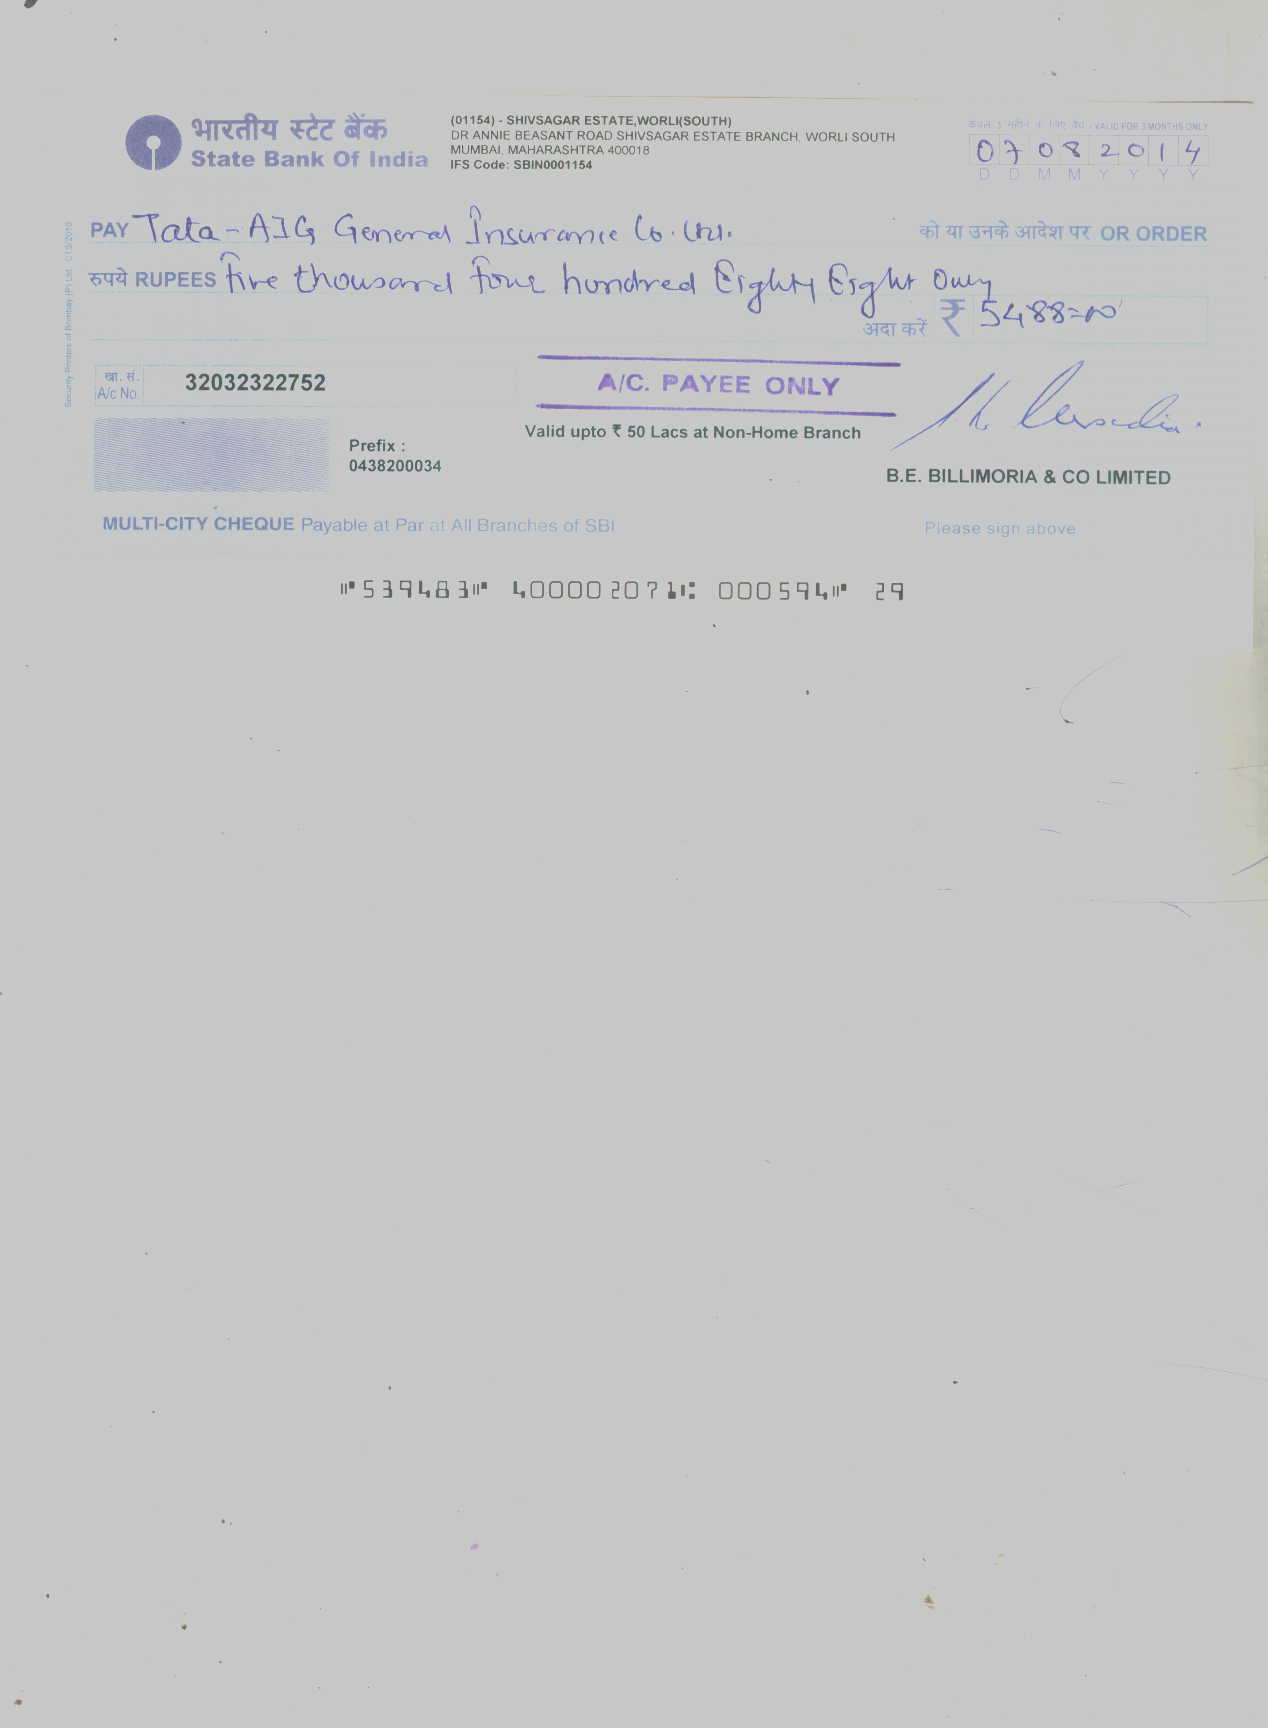 भारतीय स्टेट बैंक
State Bank Of India
(01154) - SHIVSAGAR ESTATE,WORLI(SOUTH)
DR ANNIE BEASANT ROAD SHIVSAGAR ESTATE BRANCH, WORLI SOUTH
MUMBAI, MAHARASHTRA 400018
IFS Code: SBIN0001154
VALID FOR 3 MONTHS ONLY
07082014
D D M M Y Y Y Y
PAY Tata-AIG General Insurance Co. Ltd. को या उनके आदेश पर OR ORDER
रुपये RUPEES Five thousand Four hundred Eighty Eight Only
अदा करें ₹ 5488=00
खा. सं.
A/c No. 32032322752
A/C. PAYEE ONLY
Valid upto ₹ 50 Lacs at Non-Home Branch
Prefix :
0438200034
B.E. BILLIMORIA & CO LIMITED
MULTI-CITY CHEQUE Payable at Par at All Branches of SBI
Please sign above
⑈539483⑈ 400002071⑆ 000594⑈ 29